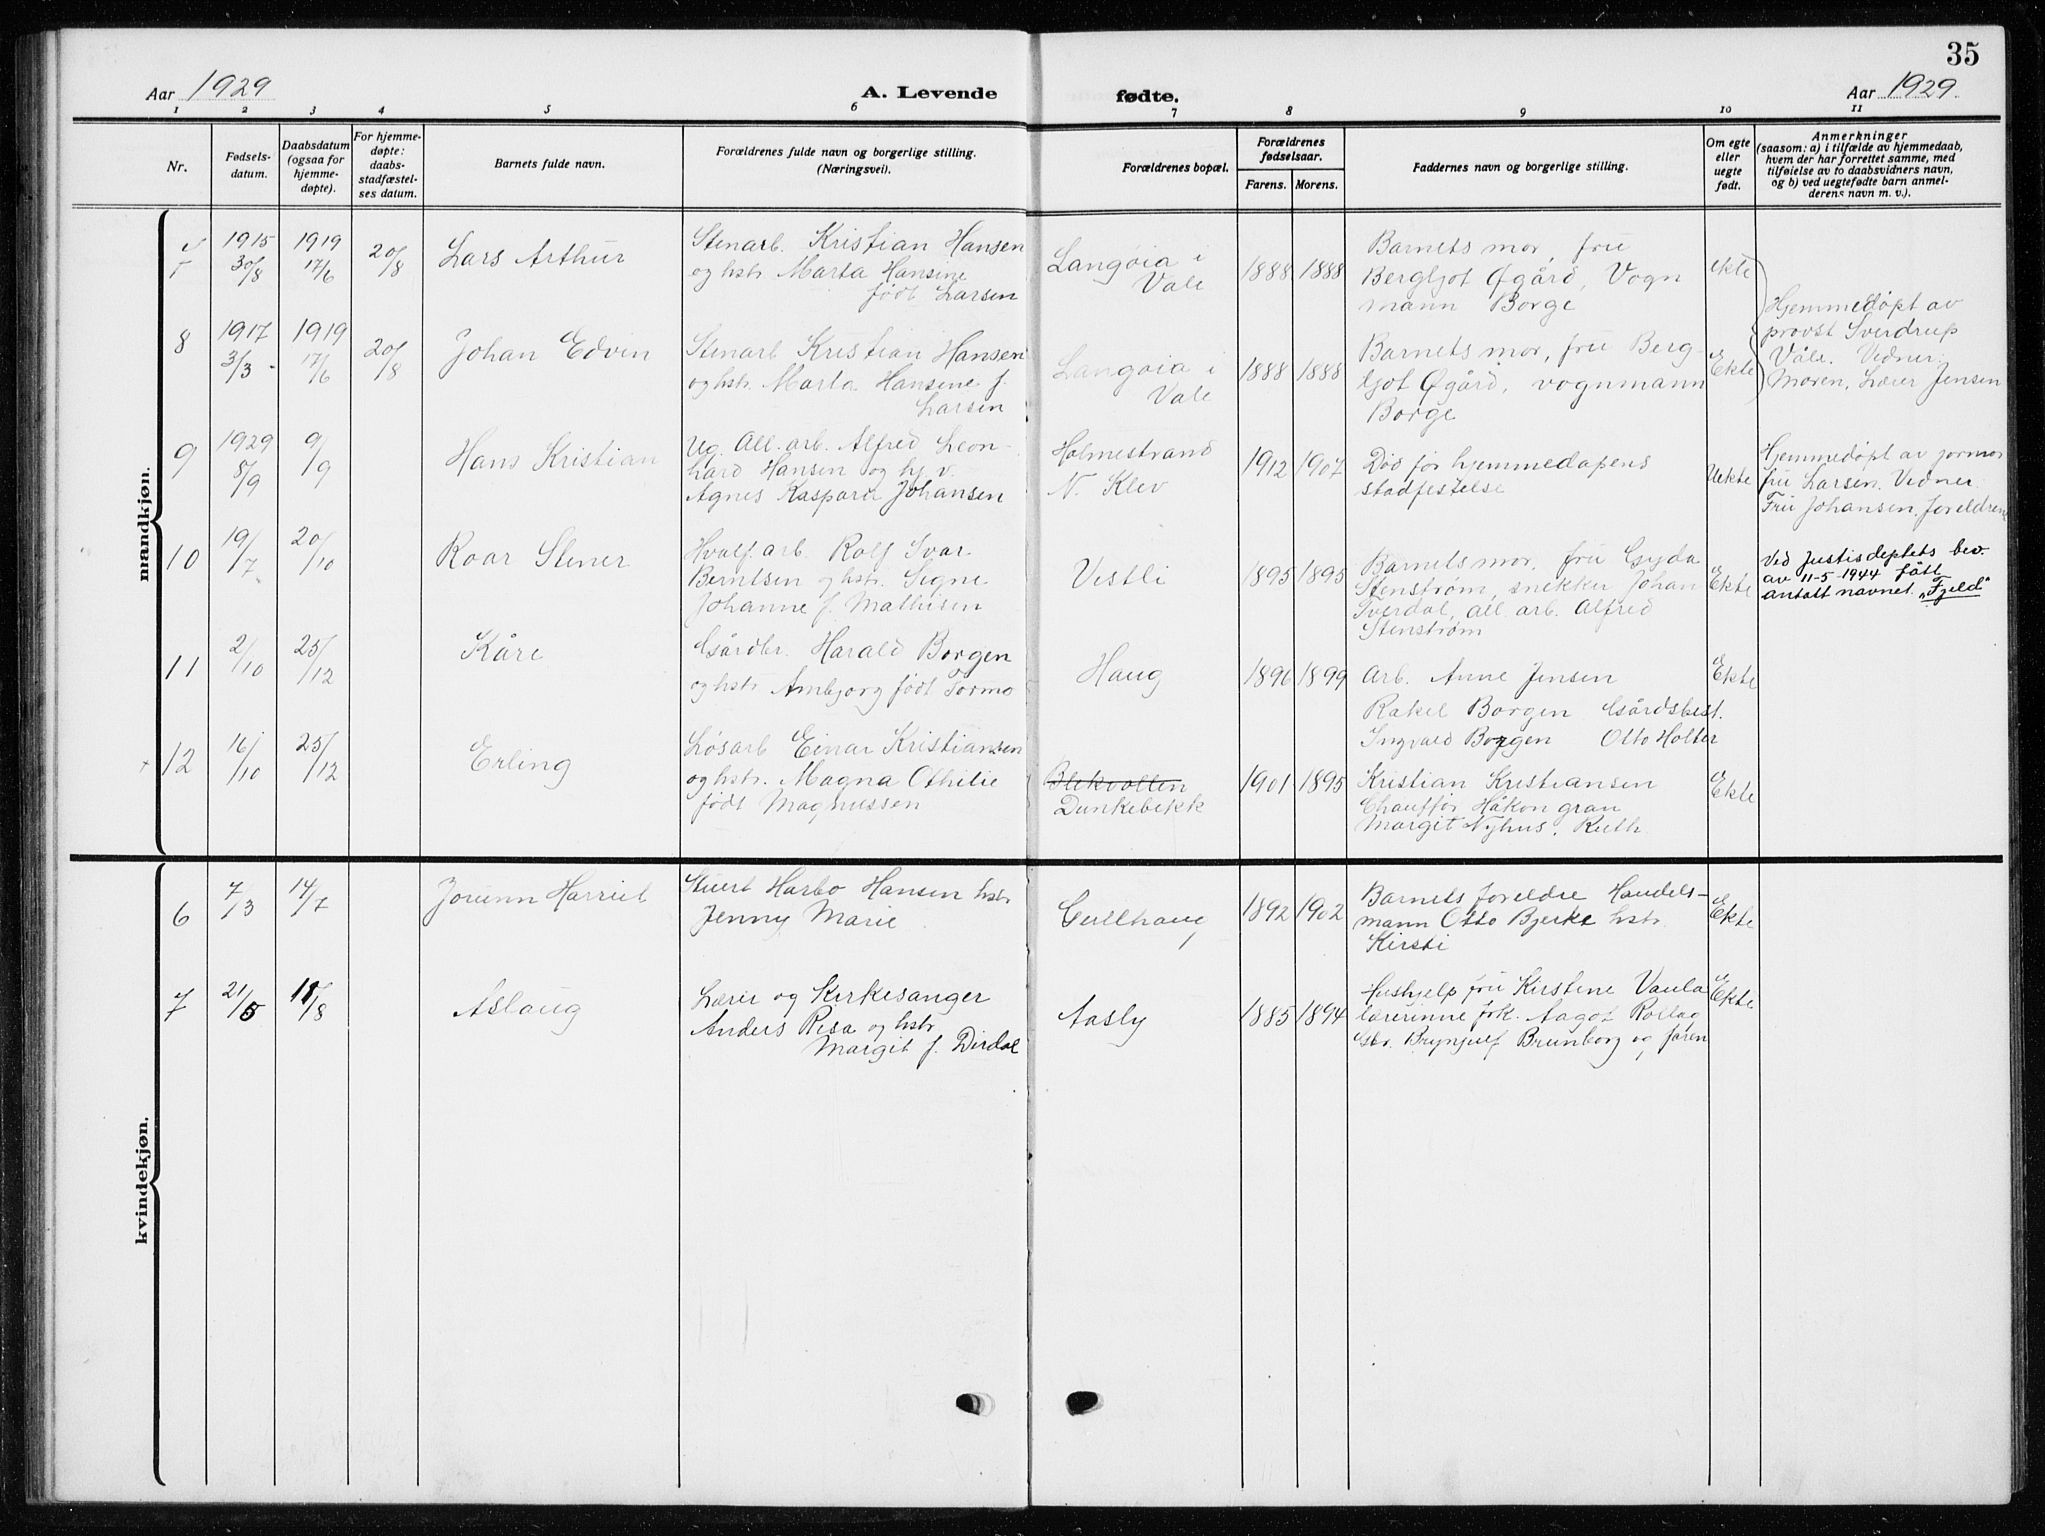 35
Aar 1929
A. Levende
fødte.
Aar 1929.
1 2 3 4 5 6 7 8 9 10 11
Nr.
Fødsels-
datum.
Daabsdatum
(ogsaa for
hjemme-
døpte).
For hjemme-
døpte:
daabs-
stadfæstel-
ses datum.
Barnets fulde navn.
Forældrenes fulde navn og borgerlige stilling.
(Næringsvei).
Forældrenes bopæl.
Forældrenes
fødselsaar.
Farens. Morens.
Faddernes navn og borgerlige stilling.
Om egte
eller
uegte
født.
Anmerkninger
(saasom: a) i tilfælde av hjemmedaab,
hvem der har forrettet samme, med
tilføielse av to daabsvidners navn,
og b) ved uegtefødte barn anmel-
derens navn m. v.).
mandkjøn.
7
1915
30/8
1919
17/6
20/8
Lars Arthur
Stenarb. Kristian Hansen
og hstr Marta Hansine
født Larsen
Langøia i
Vale
1888 1888
Barnets mor, fru
Bergljot Øgård, Vogn
mann Borge
ekte
Hjemmedøpt av
provst Sverdrup
Våle. Vidner:
Moren, Lærer Jensen
8
1917
3/3
1919
17/6
20/8
Johan Edvin
Stenarb Kristian Hansen
og hstr. Marta Hansine f.
Larsen
Langøia i
Vale
1888 1888
Barnets mor, fru Berg-
ljot Øgård, vognmann
Borge
Ekte
9
1929
8/9
9/9
Hans Kristian
Ug. All. arb. Alfred Leon-
hard Hansen og hj v.
Agnes Kaspara Johansen
Holmestrand
N. Klev
1912 1907
Død før hjemmedåpens
stadfestelse
Uekte
Hjemmedøpt av jormor
fru Larsen. Vidner:
Fru Johansen, foreldrene
10
19/7
20/10
Roar Stener
Hvalf. arb. Rolf Ivar
Berntsen og hstr. Signe
Johanne f. Mathisen
Vestli
1895 1895
Barnets mor, fru Gyda
Stenstrøm, snekker Johan
Sverdal, all. arb. Alfred
Stenstrøm
Ekte
Ved Justisdeptets bev.
av 11-5-1944 fått
antatt navnet „Fjeld"
11
2/10
25/12
Kåre
Gårdbr. Harald Borgen
og hstr Ambjørg født Tormo
Haug
1896 1899
Arb. Anne Jensen
Rakel Borgen Gårdsbest.
Ingvald Borgen Otto Holter
Ekte
12
16/10
25/12
Erling
Løsarb Einar Kristiansen
og hstr. Magna Othilie
født Magnussen
Blekvollen
Dunkebekk
1901 1895
Kristian Kristiansen
Chauffør Håkon gran
Margit Nyhus, Ruth
Ekte
kvindekjøn.
6
7/3
14/7
Jorunn Harriet
Stuert Harbo Hansen hstr
Jenny Marie
Gullhaug
1892 1902
Barnets foreldre Handels-
mann Otto Bjerke hstr
Kirsti
Ekte
7
21/5
18/8
Aslaug
Lærer og Kirkesanger
Anders Risa og hstr
Margit f. Dirdal
Aasly
1885 1894
Hushjelp fru Kirstine Vaula
lærerinne frk. Aagot Rollag
Gbr. Brynjulf Brunborg og faren
Ekte